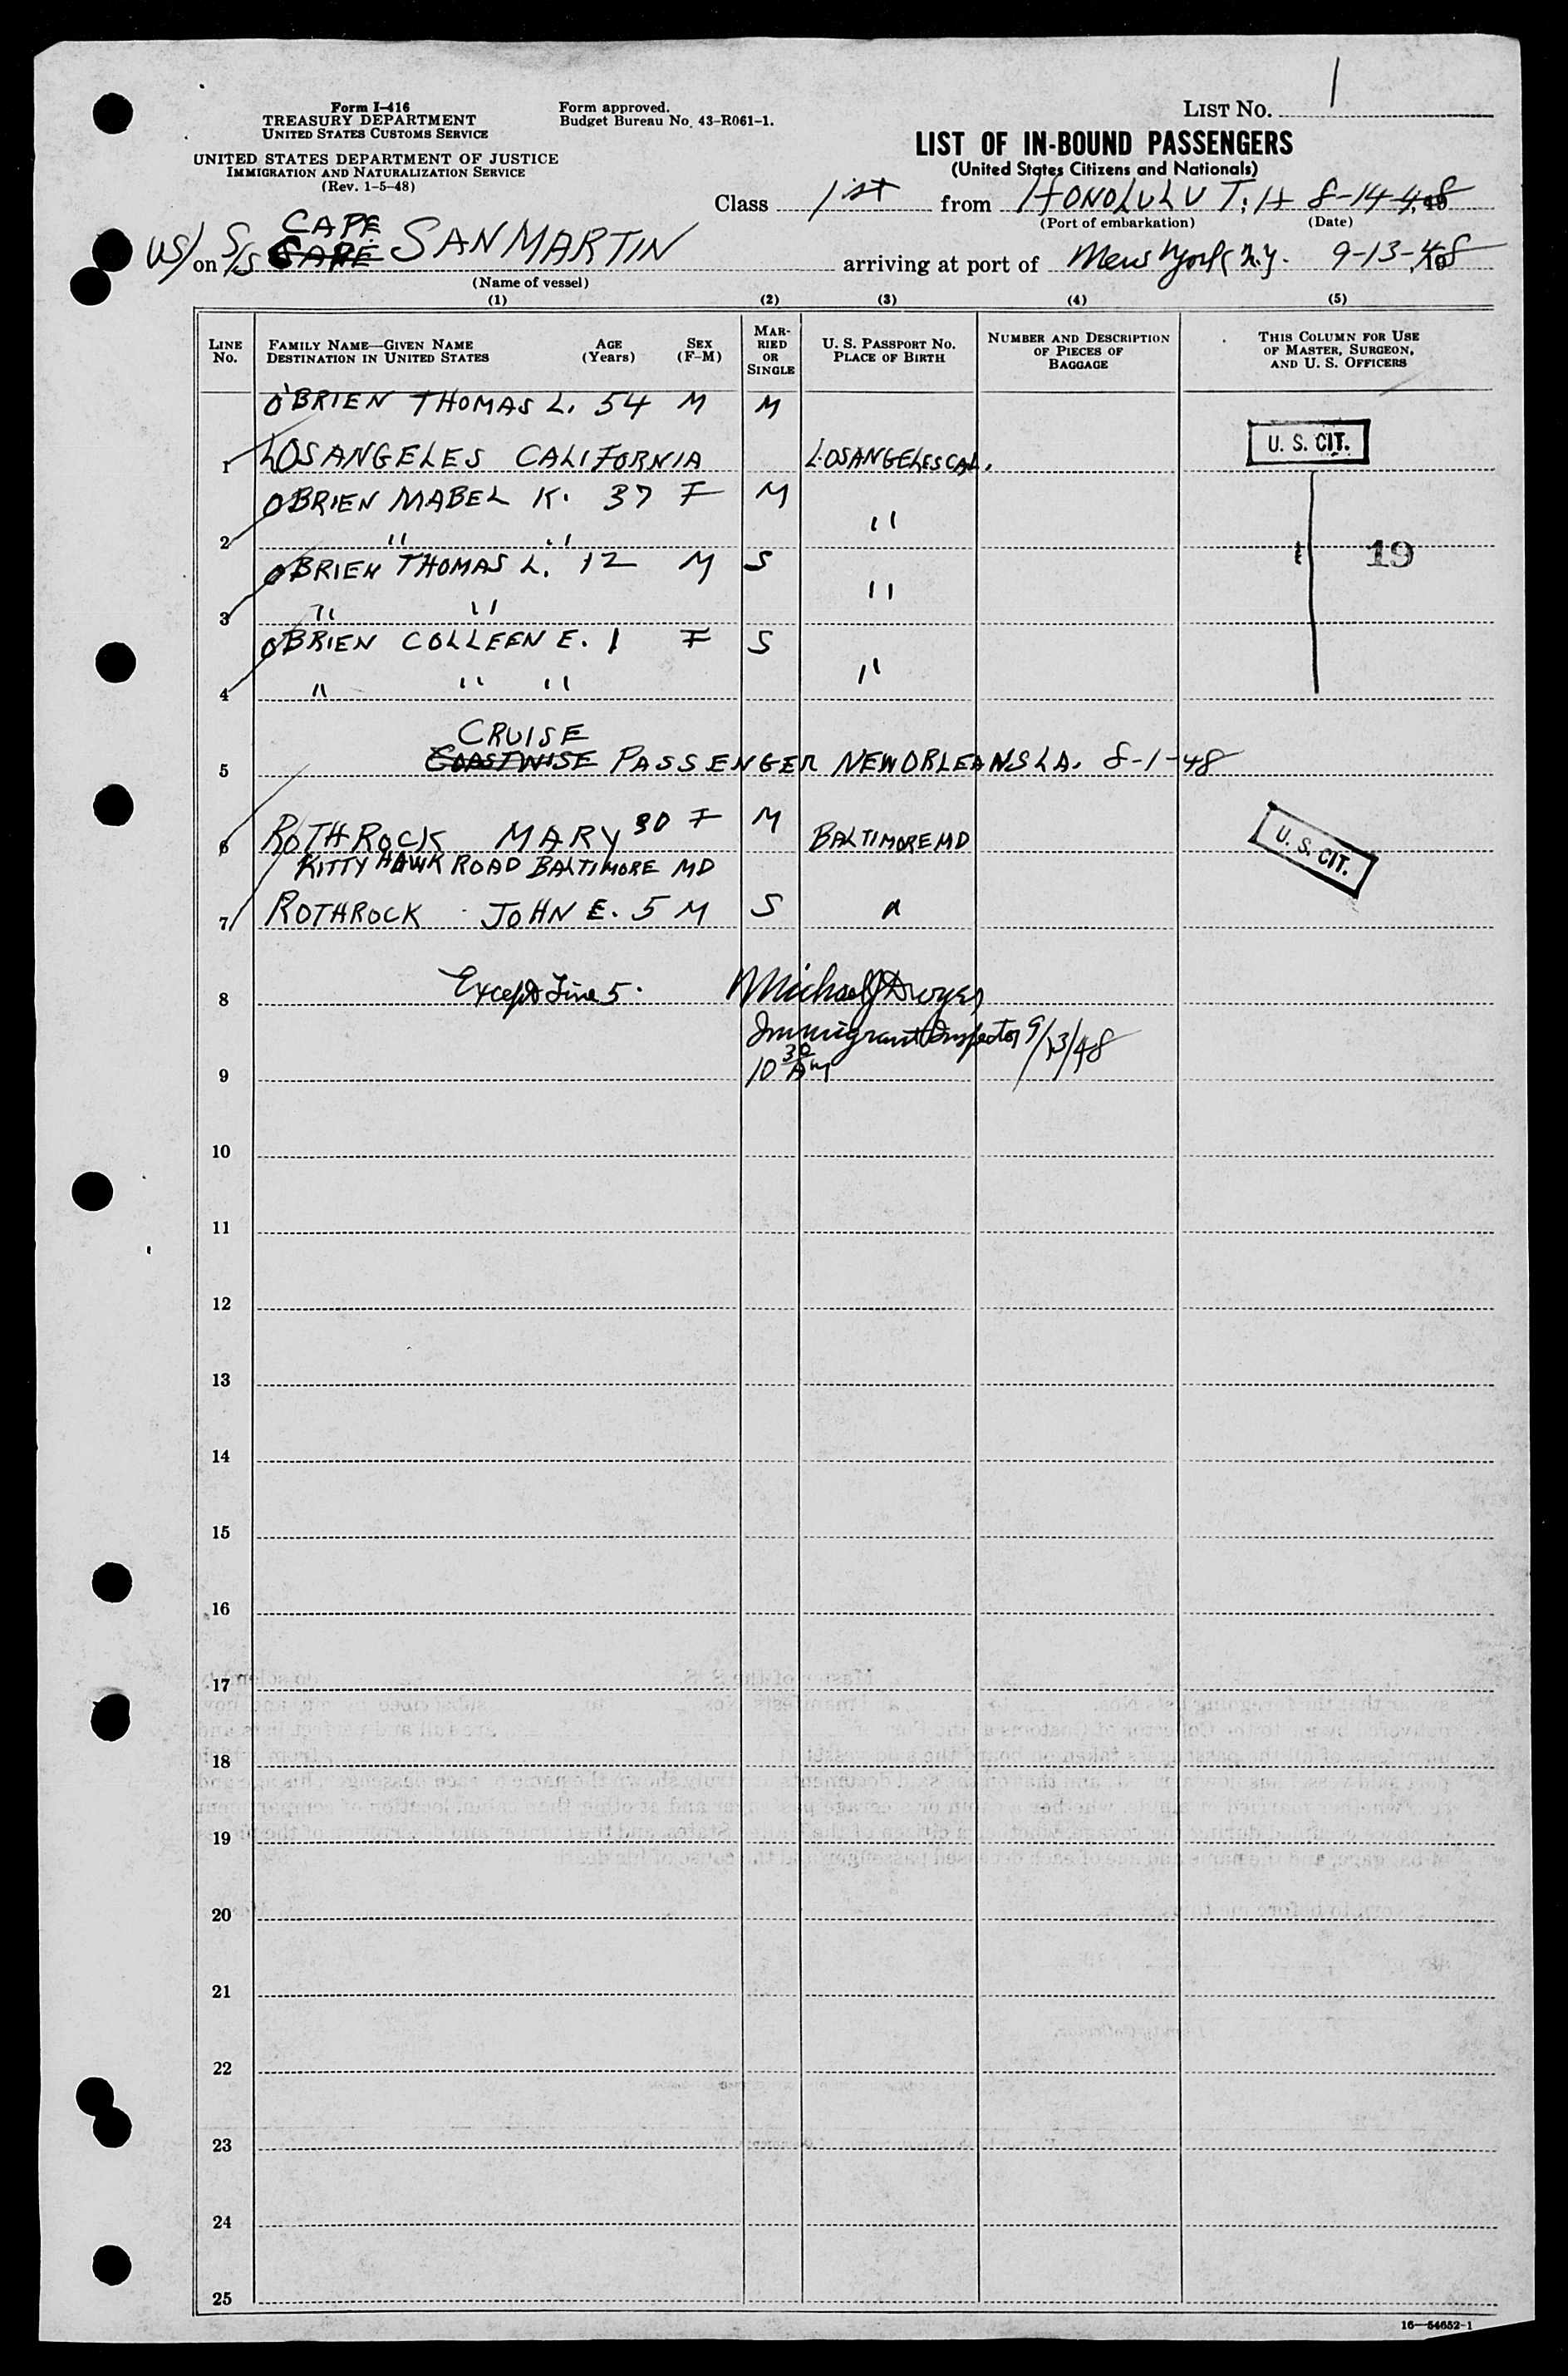 LIST NO. 1
Form I-416
TREASURY DEPARTMENT
UNITED STATES CUSTOMS SERVICE
UNITED STATES DEPARTMENT OF JUSTICE
IMMIGRATION AND NATURALIZATION SERVICE
(Rev. 1-5-48)
Form approved.
Budget Bureau No. 43-R061-1.
LIST OF IN-BOUND PASSENGERS
(United States Citizens and Nationals)
Class 1st from HONOLULU T.H 8-14-48
(Port of embarkation) (Date)
CAPE
US/ on S/S CAPE SAN MARTIN arriving at port of New York N.Y. 9-13-48
(Name of vessel)
(1) (2) (3) (4) (5)
LINE No. FAMILY NAME—GIVEN NAME DESTINATION IN UNITED STATES AGE (Years) SEX (F-M) MARRIED OR SINGLE U. S. PASSPORT NO. PLACE OF BIRTH NUMBER AND DESCRIPTION OF PIECES OF BAGGAGE THIS COLUMN FOR USE OF MASTER, SURGEON, AND U. S. OFFICERS
O'BRIEN THOMAS L. 54 M M
1 LOS ANGELES CALIFORNIA LOS ANGELES CAL. U. S. CIT.
OBRIEN MABEL K. 37 F M
2 " " "
19
OBRIEN THOMAS L. 12 M S
3 " " "
OBRIEN COLLEEN E. 1 F S
4 " " " "
CRUISE
5 COASTWISE PASSENGER NEW ORLEANS LA. 8-1-48
6 ROTHROCK MARY 30 F M BALTIMORE MD U. S. CIT.
KITTY HAWK ROAD BALTIMORE MD
7 ROTHROCK JOHN E. 5 M S "
8 Except Line 5. Michael J Dwyer
Immigrant Inspector 9/13/48
9 10 30 AM
10
11
12
13
14
15
16
17
18
19
20
21
22
23
24
25
16—54652-1